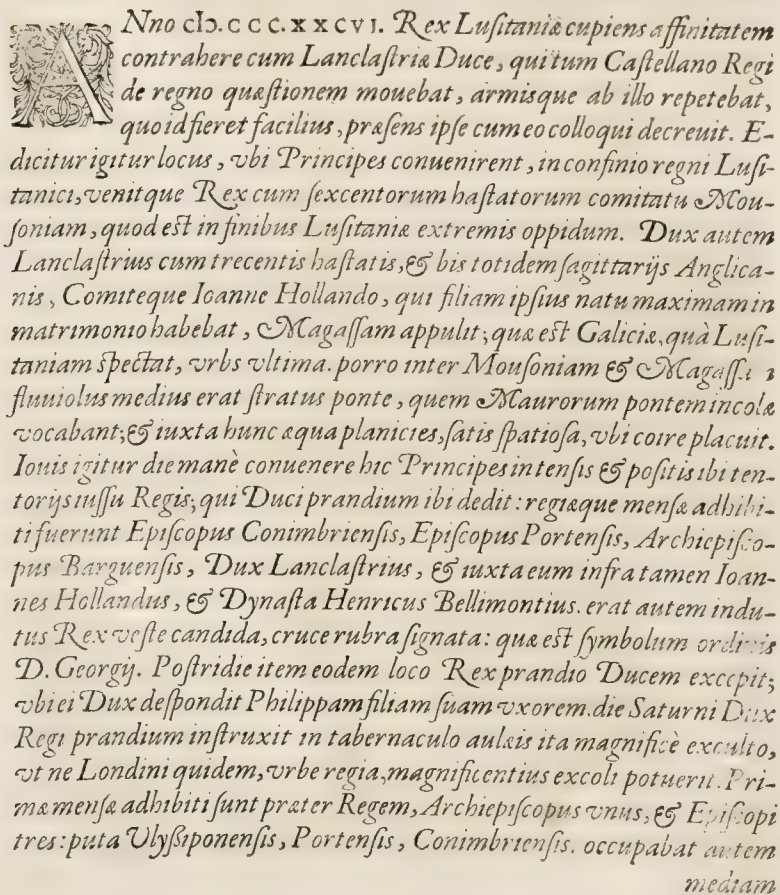 ANno cIↃ.CCC.XXCVI. Rex Luſitaniæ cupiens affinitatem
contrahere cum Lanclaſtriæ Duce, qui tum Caſtellano Regi
de regno quæſtionem mouebat, armisque ab illo repetebat,
quo id fieret facilius, præſens ipſe cum eo colloqui decreuit. E-
dicitur igitur locus, vbi Principes conuenirent, in confinio regni Luſi-
tanici, venitque Rex cum ſexcentorum haſtatorum comitatu Mou-
ſoniam, quod eſt in finibus Luſitaniæ extremis oppidum. Dux autem
Lanclaſtrius cum trecentis haſtatis, & bis totidem ſagittarijs Anglica-
nis, Comiteque Ioanne Hollando, qui filiam ipſius natu maximam in
matrimonio habebat, Magaſſam appulit; quæ eſt Galiciæ, quà Luſi-
taniam ſpectat, vrbs vltima. porro inter Mouſoniam &
fluuiolus medius erat ſtratus ponte, quem Maurorum pontem incolæ
vocabant; & iuxta hunc æqua planicies, ſatis ſpatioſa, vbi coire placuit.
Iouis igitur die manè conuenere hic Principes intenſis & poſitis ibi ten-
torijs iuſſu Regis; qui Duci prandium ibi dedit: regiæque menſæ adhibi-
ti fuerunt Epiſcopus Conimbrienſis, Epiſcopus Portenſis, Archiepiſco-
pus Barguenſis, Dux Lanclaſtrius, & iuxta eum infra tamen Ioan-
nes Hollandus, & Dynaſta Henricus Bellimontius. erat autem indu-
tus Rex veſte candida, cruce rubra ſignata: quæ eſt ſymbolum ordinis
D. Georgij. Poſtridie item eodem loco Rex prandio Ducem excepit;
vbi ei Dux deſpondit Philippam filiam ſuam vxorem. die Saturni Dux
Regi prandium inſtruxit in tabernaculo aulæis ita magnificè exculto,
vt ne Londini quidem, vrbe regia, magnificentius excoli potuerit. Pri-
mæ menſæ adhibiti ſunt præter Regem, Archiepiſcopus vnus, & Epiſcopi
tres: puta Vlyßiponenſis, Portenſis, Conimbrienſis. occupabat autem
mediam